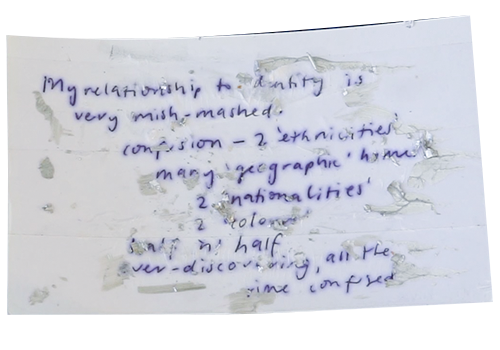 My relationship to identity is
very mish-mashed.
confusion – 2 'ethnicities'
many 'geographic' home
2 'nationalities'
2 'colours'
half n' half
ever-discovering, all the
time confused